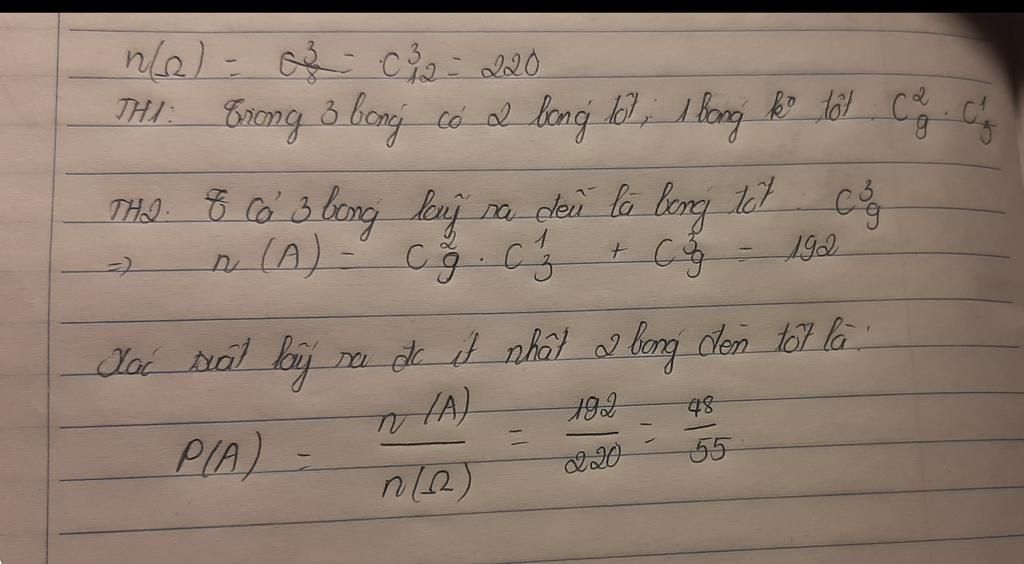 n(Ω) = C³₈ = C³₁₂ = 220
TH1: Trong 3 bong có 2 bong tốt, 1 bong ko tốt C²₉ . C¹₃
TH2: Cả 3 bong lấy ra đều là bong tốt : C³₉
=> n(A) = C²₉ . C¹₃ + C³₉ = 192
Xác suất lấy ra đc ít nhất 2 bong đèn tốt là:
P(A) = n(A)/n(Ω) = 192/220 = 48/55